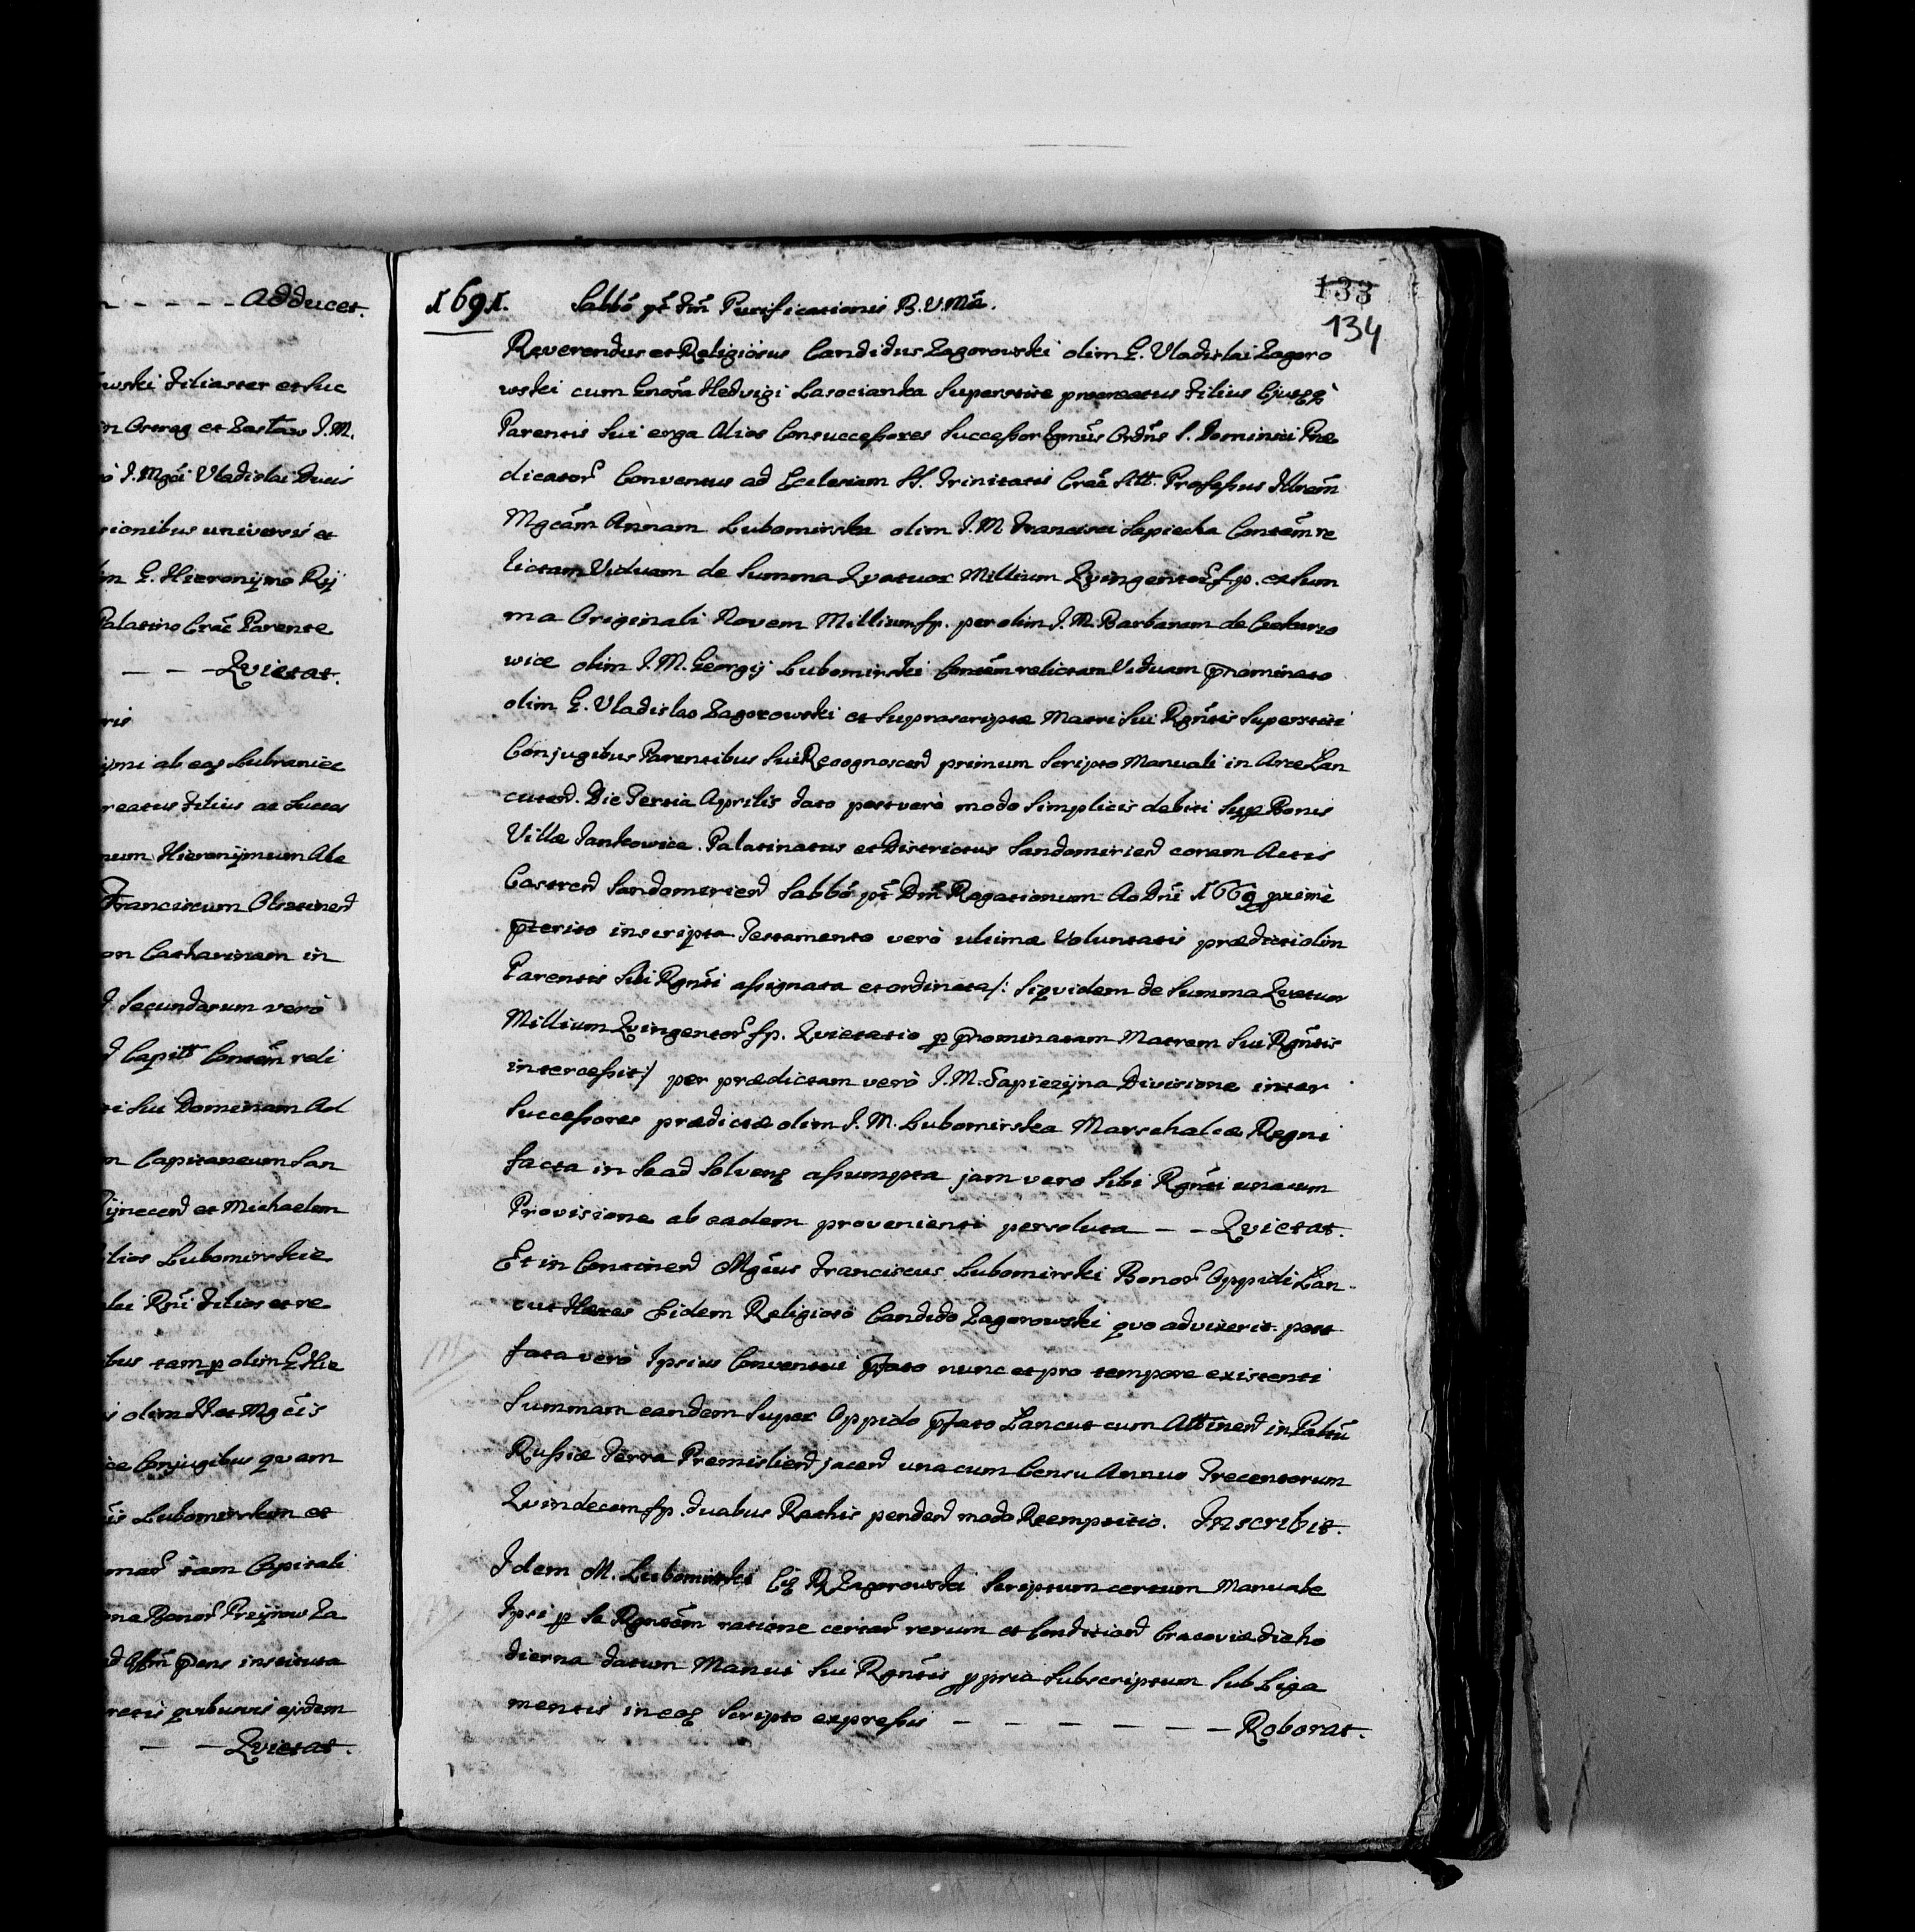 - - - - Adducet.
wski Filiaster et Suc
n Ostrog et Zasław J.M.
o J. Mgci Vladislai Ducis
tionibus universis et
im G. Hieronymo Rij
Palatino Crac Parente
- - - Qvietat.
ris
ijmi ab eaq Lubraniec
reatus Filius ac Succes
num Hieronijmum Abe
Franciscum Olsztinen
on Catharinam in
Secundarum verò
Capitt Consten reli
i Sui Dominam Ad
n Capitaneum San
Rijnecen et Michaelem
lios Lubomirskie
lui Rni Filios et re
bus tam p olim G Hie
s olim et Mgcis
ce Conjugibus qvam
is Lubomirskim et
mar tam Capitali
na Bonor Przijrow Za
d Assm Pens instituta
retis qvibusvis ejsdem
- - Qvietat.
133
134
1691. Sabbo pt Fm Purificationis B.V.Mæ.
Reverendus et Religiosus Candidus Zagorowski olim G. Vladislai Zagoro
wski cum Gnosa Hedvigi Lasocianka Superstite procreatus Filius Ejusqq
Parentis Sui erga Alios Consuccessores Successor Ordns S. Dominici Præ
dicator Conventus ad Ecclesiam SS. Trinitatis Crac Sitt. Professus Illrem
Mgcam Annam Lubomirska olim J.M. Francisci Sapiecha Contem re
lictam Viduam de Summa Qvatuor Millium Qvingentor fp. et Sum
ma Originali Novem Millium fp. per olim J.M. Barbaram de
wice olim J.M. Georgij Lubomirski Contem relictam Viduam Pnominato
olim G. Vladislao Zagorowski et Suprascriptæ Matri Sui Rgntis Superstiti
Conjugibus Parentibus Sui Recognoscen primum Scripto Manuali in Arce Lan
cuten. Die Tertia Aprilis dato post verò modo Simplicis debiti Supe Bonis
Villæ Jankowice Palatinatus et Districtus Sandomirien coram Actis
Castren Sandomirien Sabbo pt Dm Rogationum Ao Dni 1669 primi
Pterito inscripta Testamento verò ultimæ Voluntatis prædicti olim
Parentis Sui Rgnti assignata et ordinata /: Siqvidem de Summa Qvatuor
Millium Qvingentor fp. Qvietatio p Pnominatam Matrem Sui Rgntis
intercessit :/ per prædictam verò J.M. Sapiezijna Divisione inter
Successores prædictæ olim J.M. Lubomirska Marschalcæ Regni
facta in Se ad Solveng assumpta jam vero Sibi Rgnti unacum
Provisione ab eadem provenienti persoluta - - Qvietat.
Et in Continen Mgcus Franciscus Lubomirski Bonor Oppidi Lan-
cut Heres Eidem Religioso Candido Zagorowski qvo advixerit post
fata verò Ipsius Conventui Pfato nunc et pro tempore existenti
Summam eandem Super Oppido Pfato Lancut cum Attinen in Paltu
Russiæ Terra Premislien jacen una cum Censu Annuo Trecentorum
Qvindecem fp. duabus Rathis penden modo Reemptitio. Inscribit.
Idem M. Lubomirski Eiq R Zagorowski Scriptum certum Manuale
Ipsi p Se Rgntem ratione certar rerum et Condition Cracoviæ die ho
dierna datum Manui Sui Rgntis ppria Subscriptum Sub Liga
mentis in eoq Scripto expressis - - - - - - Roborat.